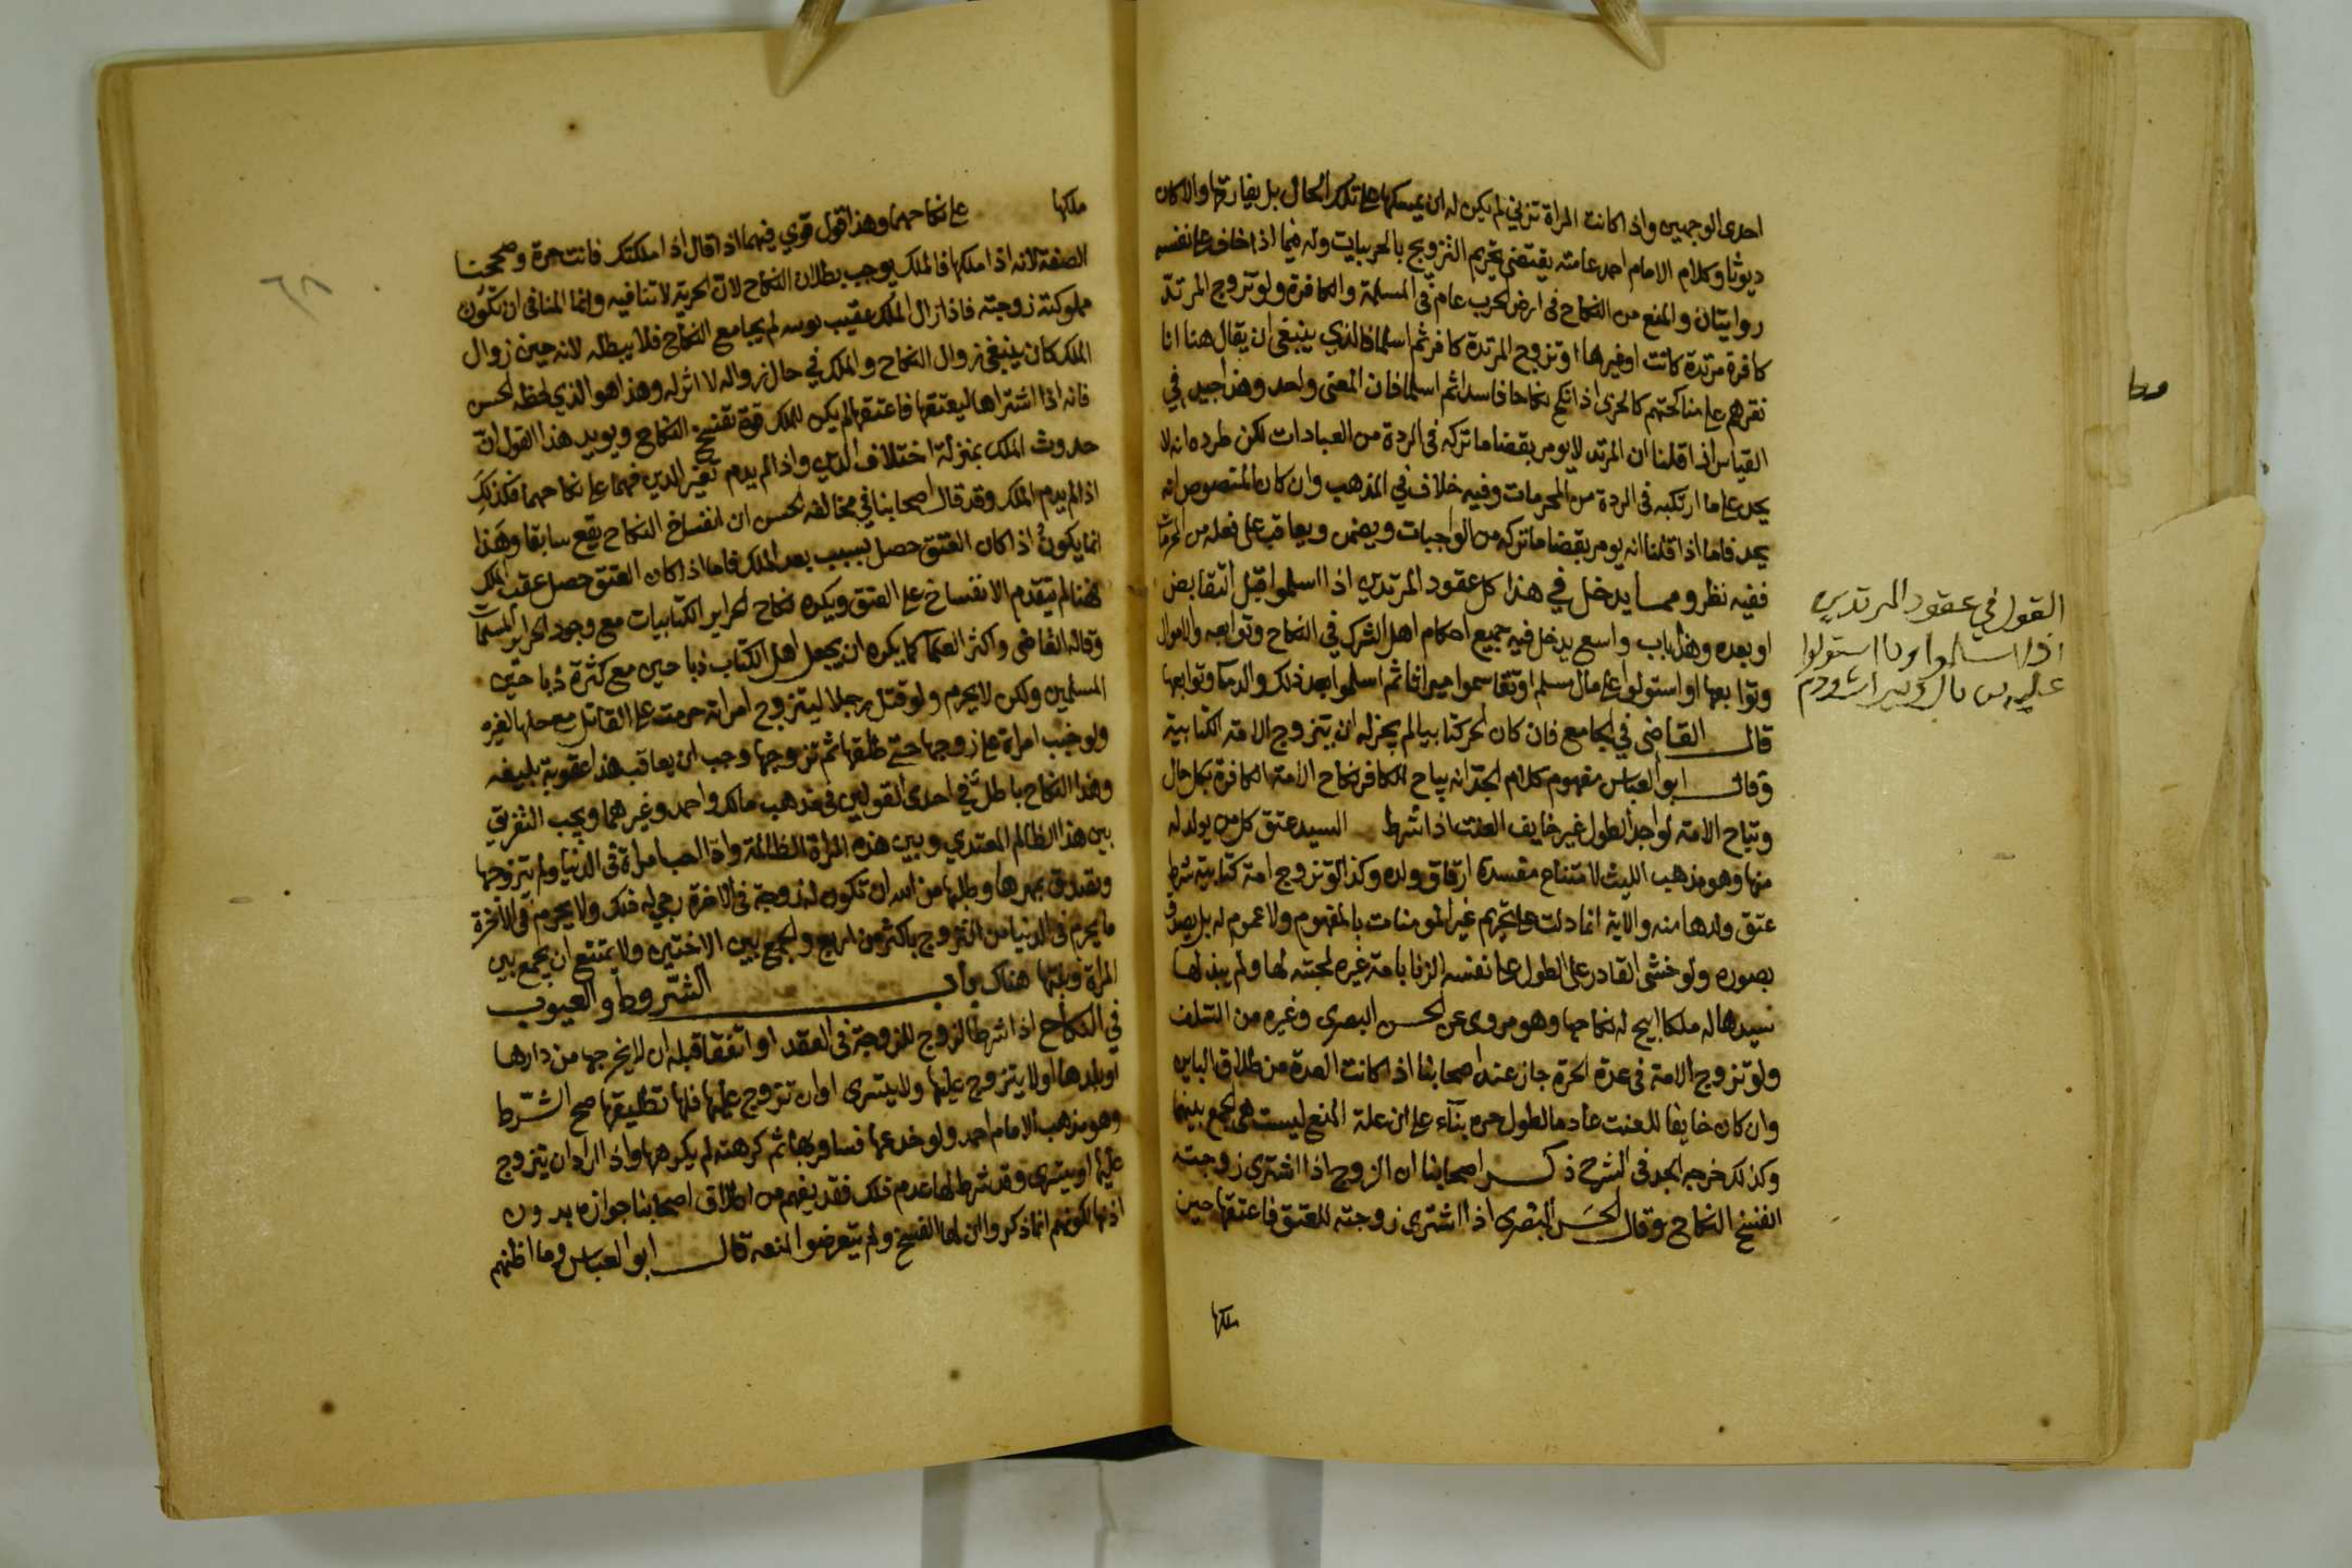 احدى الوجهين واذا كانت المراة تزني لم يكن له ان يمسكها على تلك الحال بل يفارقها والا كان
ديوثا وكلام الامام احمد عامته يقتضي تحريم التزويج بالحربيات وله فيما اذا خاف على نفسه
روايتان والمنع من النكاح في ارض الحرب عام في المسلمة والكافرة ولو تزوج المرتد
كافرة مرتدة كانت او غيرها او تزوج المرتدة كافر ثم اسلما فالذي ينبغي ان يقال هنا انا
نقرهم على مناكحتهم كالحربي اذا نكح نكاحا فاسدا ثم اسلما فان المعنى واحد وهذا جيد في
القياس اذا قلنا ان المرتد لا يومر بقضا ما تركه في الردة من العبادات لكن طرده انه لا
يحد على ما ارتكبه في الردة من المحرمات وفيه خلاف في المذهب وان كان المنصوص انه
يحد فاما اذا قلنا انه يومر بقضا ما تركه من الواجبات ويضمن ويعاقب على فعله من المحرمات
ففيه نظر ومما يدخل في هذا كل عقود المرتدين اذا اسلموا قبل التقابض
او بعده وهذا باب واسع يدخل فيه جميع احكام اهل الشرك في النكاح وتوابعه والاموال
وتوابعها او استولوا على مال مسلم او تقاسموا ميراثا ثم اسلموا بعد ذلك والدما وتوابعها
قال القاضي في الجامع فان كان الحر كتابيا لم يجز له ان يتزوج الامة الكتابية
وقال ابو العباس مفهوم كلام الجد انه يباح للكافر نكاح الامة الكافرة بكل حال
وتباح الامة لواجد الطول غير خايف العنت اذا شرط السيد عتق كل من يولد له
منها وهو مذهب الليث لامتناح مفسدة ارقاق ولده وكذا لو تزوج امة كتابية شرط
عتق ولدها منه والاية انما دلت على تحريم غير المومنات بالمفهوم ولا عموم له بل يصدق
بصوره ولو خشي القادر على الطول على نفسه الزنا بامة غيره لمحبته لها ولم يبذلها
سيدها له ملكا ابيح له نكاحها وهو مروي عن الحسن البصري وغيره من السلف
ولو تزوج الامة في عدة الحرة جاز عند اصحابنا اذا كانت العدة من طلاق الباين
وان كان خايفا للعنت عادما لطول حره بنآء على ان علة المنع ليست هي الجمع بينهما
وكذلك خرجه الجد في الشرح ذكر اصحابنا ان الزوج اذا اشترى زوجته
انفسخ النكاح وقال الحسن البصري اذا اشترى زوجته للعتق فاعتقها حين
ملكها
القول في عقود المرتدين
اذا اسلموا وما استولوا
عليه من مال وميراث ودم
ملكها على نكاحهما وهذا قول قوي فيهما اذا قال اذا ملكتك فانت حرة وصححنا
الصفة لانه اذا ملكها فالملك يوجب بطلان النكاح لان الحرية لا تنافيه وانما المنافي ان تكون
مملوكته زوجته فاذا زال الملك عقيب لم يجامع النكاح فلا يبطله لانه حين زوال
الملك كان ينبغي زوال النكاح والملك في حال زواله لا اثر له وهذا هو الذي لحظه الحسن
فانه اذا اشتراها ليعتقها فاعتقها لم يكن للملك قوة تفسخ النكاح ويويد هذا القول ان
حدوث الملك بمنزلة اختلاف الدين واذا لم يدم تغير الدين فهما على نكاحهما فكذلك
اذا لم يدم الملك وقد قال اصحابنا في مخالفه الحسن ان انفساخ النكاح يقع سابقا وهذا
انما يكون اذا كان العتق حصل بسبب بعد الملك فاما اذا كان العتق حصل عقب الملك
فهنا لم يتقدم الانفساخ على العتق ويكره نكاح الحراير الكتابيات مع وجود الحراير المسلمات
وقاله القاضي واكثر العلما كما يكره ان يجعل اهل الكتاب ذباحين مع كثرة ذباحين
المسلمين ولكن لا يحرم ولو قتل رجلا ليتزوج امراته حرمت على القاتل مع حلها لغيره
ولو خبب امراة على زوجها حتى طلقها ثم تزوجها وجب ان يعاقب هذا عقوبة بليغه
وهذا النكاح باطل في احدى القولين في مذهب مالك واحمد وغيرهما ويجب التفريق
بين هذا الظالم المعتدي وبين هذه المراة الظالمة واذا احب امراة في الدنيا ولم يتزوجها
وتصدق بمهرها وطلبها من الله ان تكون له زوجة في الاخرة رجي له ذلك ولا يحرم في الاخرة
ما يحرم في الدنيا من التزوج باكثر من اربع والجمع بين الاختين ولا يمتنع ان يجمع بين
المراة وبنتها هناك باب الشروط والعيوب
في النكاح اذا شرط الزوج للزوجة في العقد او اتفقا قبله ان لا يخرجها من دارها
او بلدها او لا يتزوج عليها ولا يتسرى او ان تزوج عليها فلها تطليقها صح الشرط
وهو مذهب الامام احمد ولو خدعها فسافر بها ثم كرهته لم يكرهها واذا اراد ان يتزوج
عليها او يتسرى وقد شرط لها عدم ذلك فقد يفهم من اطلاق اصحابنا جوازه بدون
اذنها لكونهم انما ذكروا ان لها الفسخ ولم يتعرضوا لمنعه قال ابو العباس وما اظنهم
٦٨